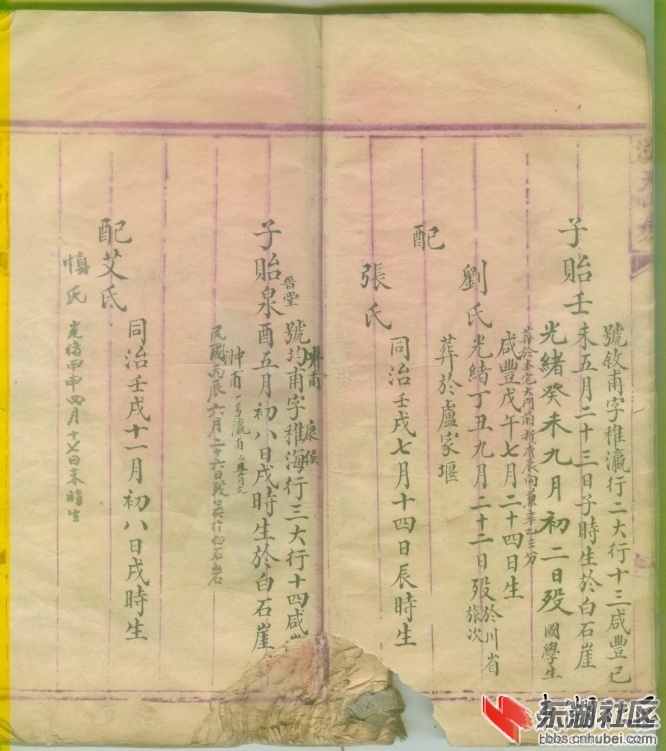 號敘甫字稚瀛行二大行十三咸豐己
子貽壬未五月二十三日子時生於白石崖
光緒癸未九月初二日歿 國學生
咸豐戊午七月二十四日生
劉氏光緒丁丑九月二十二日歿於川省
張次
葬於盧家堰
配
張氏
同治壬戌七月十四日辰時生
號均甫字稚海行三大行十四咸豐
康侯
子貽泉酉五月初八日戌時生於白石崖
晉堂
民國丙辰六月二十六日歿葬於白石崖
配艾氏
同治壬戌十一月初八日戌時生
慎氏 光緒甲申四月十七日未時生
东湖社区
bbs.cnhubei.com